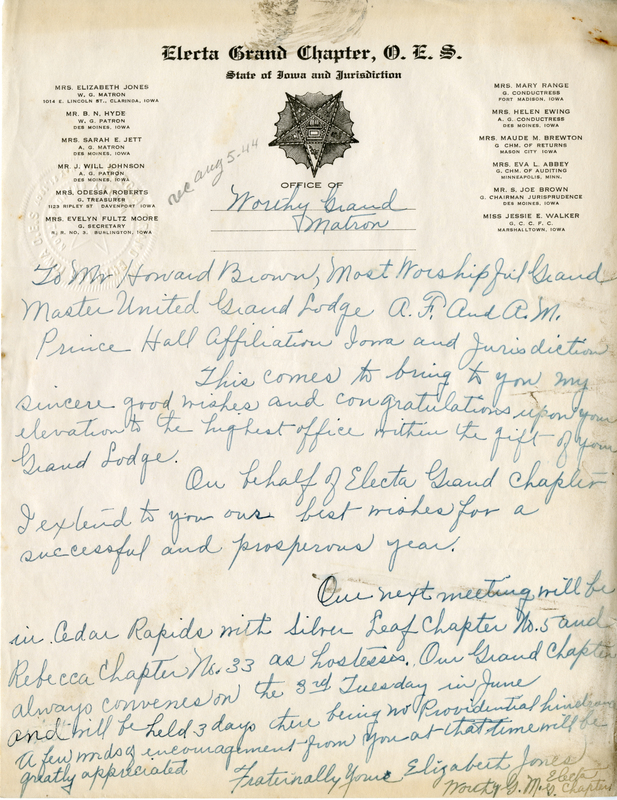 Electa Grand Chapter, O. E. S.
State of Iowa and Jurisdiction
MRS. ELIZABETH JONES
W. G. MATRON
1014 E. LINCOLN ST., CLARINDA, IOWA
MR. B. N. HYDE
W. G. PATRON
DES MOINES, IOWA
MRS. SARAH E. JETT
A. G. MATRON
DES MOINES, IOWA
MR. J. WILL JOHNSON
A. G. PATRON
DES MOINES, IOWA
MRS. ODESSA ROBERTS
G. TREASURER
1123 RIPLEY ST. DAVENPORT, IOWA
MRS. EVELYN FULTZ MOORE
G. SECRETARY
R. R. NO. 3, BURLINGTON, IOWA
MRS. MARY RANGE
G. CONDUCTRESS
FORT MADISON, IOWA
MRS. HELEN EWING
A. G. CONDUCTRESS
DES MOINES, IOWA
MRS. MAUDE M. BREWTON
G. CHM. OF RETURNS
MASON CITY, IOWA
MRS. EVA L. ABBEY
G. CHM. OF AUDITING
MINNEAPOLIS, MINN.
MR. S. JOE BROWN
G. CHAIRMAN JURISPRUDENCE
DES MOINES, IOWA
MISS JESSIE E. WALKER
G. C. C. F. C.
MARSHALLTOWN, IOWA
rec aug 5-44
OFFICE OF
Worthy Grand
Matron
To Mr Howard Brown, Most Worshipful Grand
Master United Grand Lodge A. F. And A. M.
Prince Hall Affiliation Iowa and Jurisdiction
This comes to bring to you my
sincere good wishes and congratulations upon your
elevation to the highest office within the gift of your
Grand Lodge.
On behalf of Electa Grand Chapter
I extend to you our best wishes for a
successful and prosperous year.
Our next meeting will be
in Cedar Rapids with Silver Leaf Chapter No. 5 and
Rebecca Chapter No. 33 as hostesses. Our Grand Chapter
always convenes on the 3rd Tuesday in June
and will be held 3 days there being no Providential
A few words of encouragement from you at that time will be
greatly appreciated
Fraternally Yours Elizabeth Jones
Worthy G. M. Electa G. Chapter